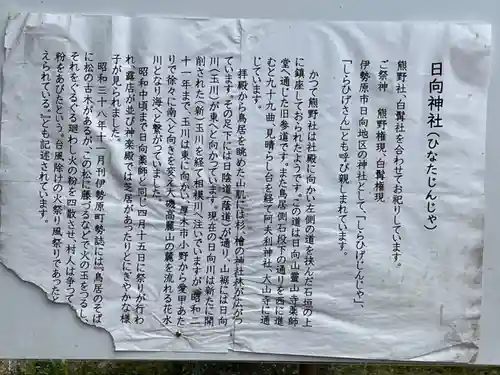 日向神社(ひなたじんじゃ)
熊野社、白髭社を合わせてお祀りしています。
ご祭神　熊野権現、白髭権現
伊勢原市日向地区の神社として、「しらひげじんじゃ」、
「しらひげさん」とも呼び親しまれています。
かつて熊野社は社殿に向かい左側の道を挟んだ石垣の上
に鎮座しておられたようです。この道は日向山霊山寺薬師
堂へ通じた旧参道です。また鳥居側石段下の通りを西に進
むと九十九曲、見晴らし台を経て阿夫利神社、大山寺に通
じています。
拝殿から鳥居を眺めた山肌には杉、檜の神社林が広がっ
ています。その足下には日陰道(蔭道)が通り、山裾には日向
川(玉川)が東へと向かっています。現在の日向川は新たに開
削された(新)玉川を経て相模川へ注いでいますが、昭和二
十一年まで、玉川は東に向かい、厚木市小野から愛甲あた
りで徐々に南へと向きを変え、磯高麗山の麓を流れる花水
川となり海へと繋がっていました。
昭和中頃まで日向薬師と同じ四月十五日に祭りが行わ
れ、露店が並び神楽殿では芝居があったりとにぎやかな様
子が見られました。
昭和三十八年十一月刊伊勢原町勢誌には「鳥居のそば
に松の古木があるが、この松に藤づるなどで火の玉をつるし、
それをぐるぐる廻わし火の粉を四散させ、村人は争って
粉をあびたという。台風除けの火祭り風祭りであったと
えられている。」とも記述されています。